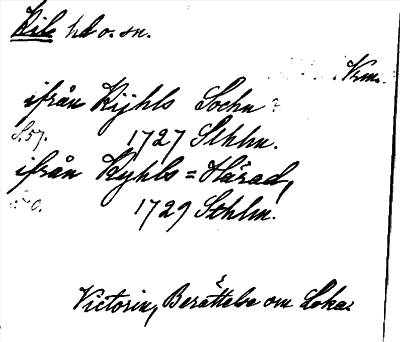 Kil hd o. sn.
Vrm.
ifrån Kijhls Sochn
S. 57. 1727 Sthlm.
ifrån Kyhls = Härad,
70. 1729 Sthlm.
Victorin, Berättelse om Loka.